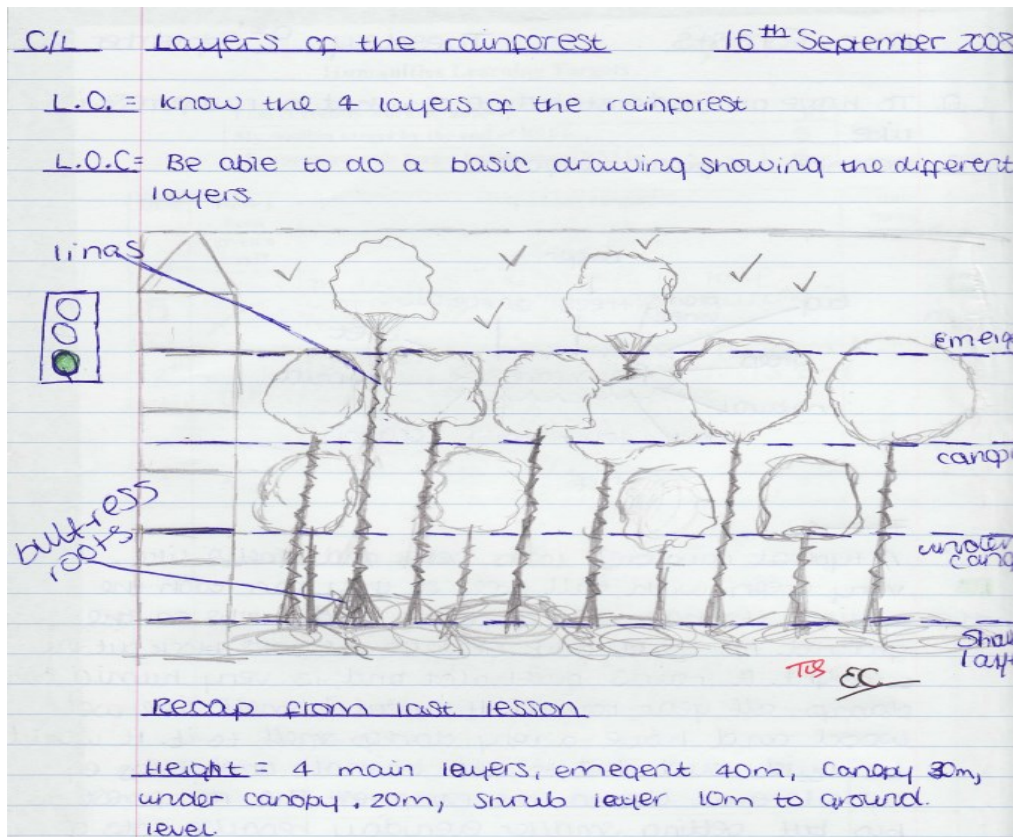 C/L Layers of the rainforest 16th September 2008
L.O. = Know the 4 layers of the rainforest
L.O.C = Be able to do a basic drawing showing the different
layers
linas
Emerg
canop
buttress
roots
under
cano
Shru
laye
EC
Recap from last lesson
Height = 4 main layers, emegent 40m, Canopy 30m,
under canopy, 20m, shrub layer 10m to ground.
level